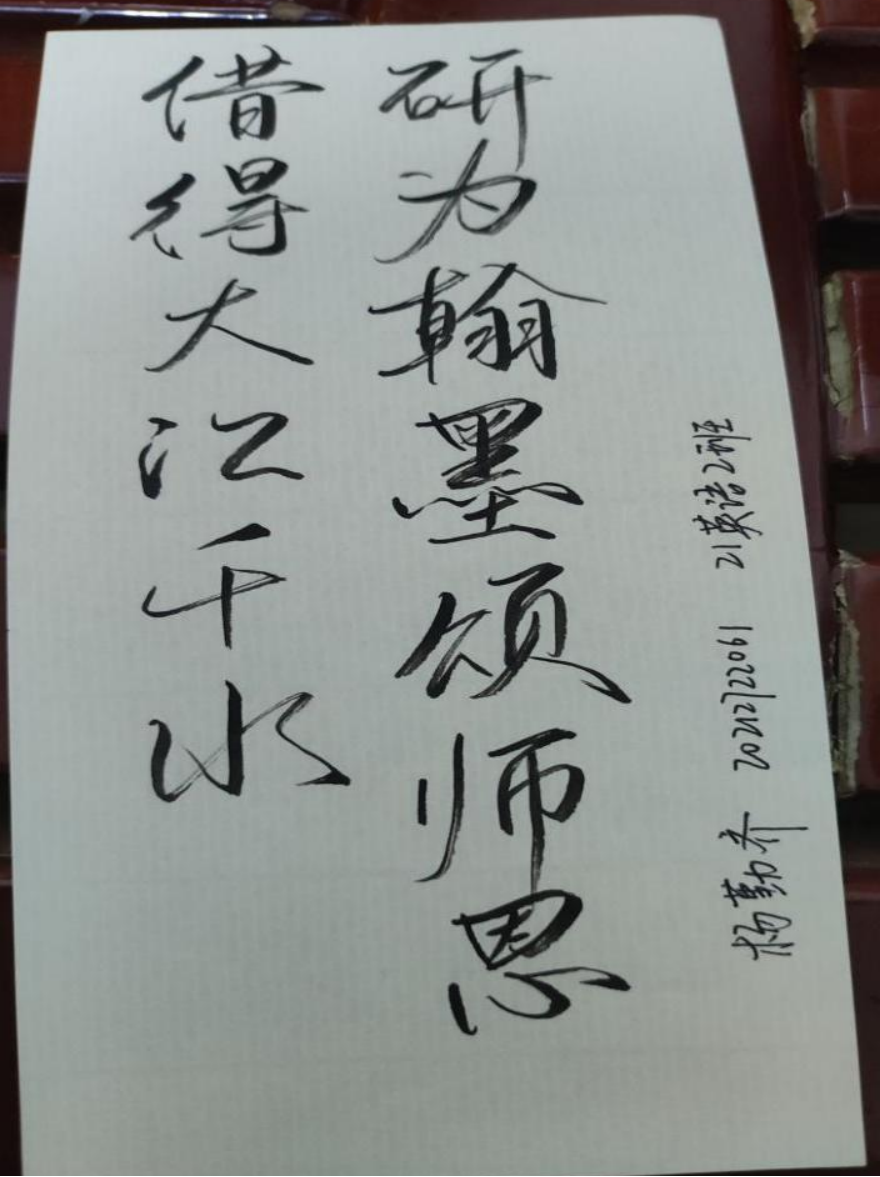 借得大江千水
研为翰墨颂师恩
杨勤齐 20212122061 21英语2班